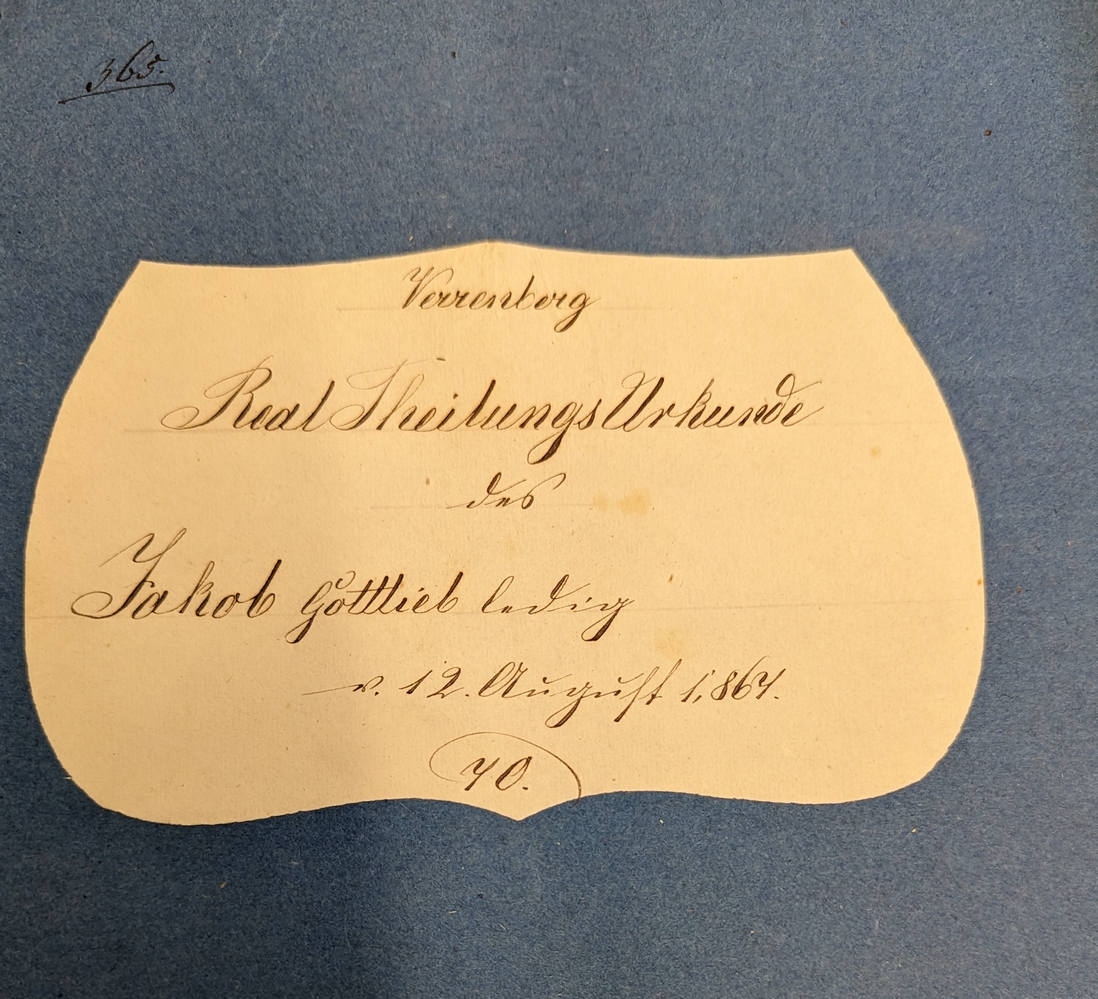 365.
Verrenberg
Real Theilungs Urkunde
des
Jakob Gottlieb ledig
v. 12. August 1867.
70.